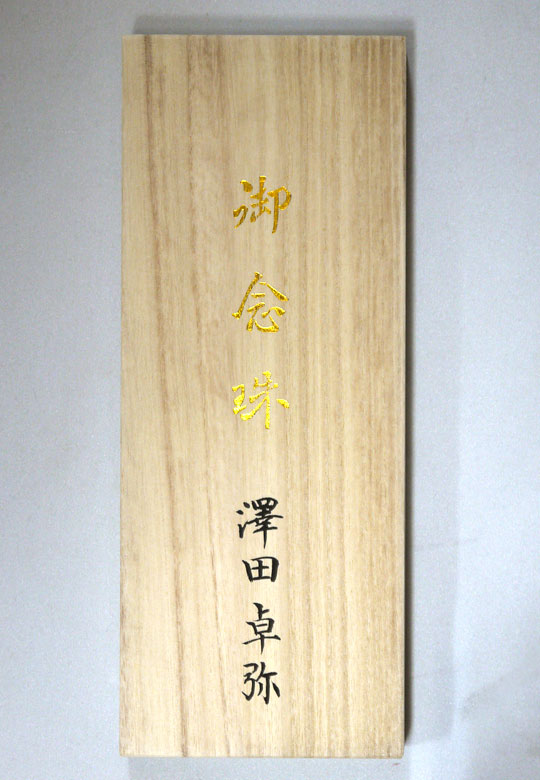 御念珠
澤田卓弥